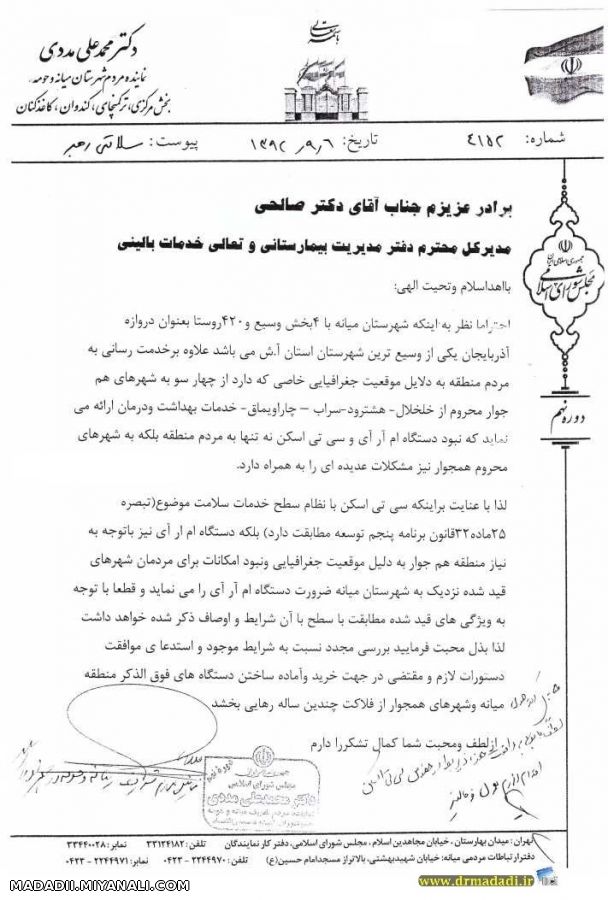 دکتر محمدعلی مددی
نماینده مردم شهرستان میانه و حومه
بخش مرکزی، ترکمنچای، کندوان، کاغذکنان
شماره: ۴۱۵۲
تاریخ: ۱۳۹۲/۹/۶
پیوست: سلامتی رهبر
جمهوری اسلامی ایران
مجلس شورای اسلامی
دوره نهم
برادر عزیزم جناب آقای دکتر صالحی
مدیرکل محترم دفتر مدیریت بیمارستانی و تعالی خدمات بالینی
بااهداسلام وتحیت الهی:
احتراما نظر به اینکه شهرستان میانه با ۴بخش وسیع و۴۲۰روستا بعنوان دروازه
آذربایجان یکی از وسیع ترین شهرستان استان آ.ش می باشد علاوه برخدمت رسانی به
مردم منطقه به دلایل موقعیت جغرافیایی خاصی که دارد از چهار سو به شهرهای هم
جوار محروم از خلخلال- هشترود-سراب – چاراویماق- خدمات بهداشت ودرمان ارائه می
نماید که نبود دستگاه ام آر آی و سی تی اسکن نه تنها به مردم منطقه بلکه به شهرهای
محروم همجوار نیز مشکلات عدیده ای را به همراه دارد.
لذا با عنایت براینکه سی تی اسکن با نظام سطح خدمات سلامت موضوع(تبصره
۲۵ماده۳۲قانون برنامه پنجم توسعه مطابقت دارد) بلکه دستگاه ام ار آری نیز باتوجه به
نیاز منطقه هم جوار به دلیل موقعیت جغرافیایی ونبود امکانات برای مردمان شهرهای
قید شده نزدیک به شهرستان میانه ضرورت دستگاه ام آر آی را می نماید و قطعا با توجه
به ویژگی های قید شده مطابقت با سطح با آن شرایط و اوصاف ذکر شده خواهد داشت
لذا بذل محبت فرمایید بررسی مجدد نسبت به شرایط موجود و استدعا ی موافقت
دستورات لازم و مقتضی در جهت خرید وآماده ساختن دستگاه های فوق الذکر منطقه
میانه وشهرهای همجوار از فلاکت چندین ساله رهایی بخشد
ازلطف ومحبت شما کمال تشکررا دارم
مجلس شورای اسلامی
دکتر محمدعلی مددی
تهران: میدان بهارستان، خیابان مجاهدین اسلام، مجلس شورای اسلامی، دفتر کار نمایندگان تلفن: ۳۳۱۳۴۱۸۲ نمابر: ۳۳۴۴۰۰۲۸
دفترارتباطات مردمی میانه: خیابان شهیدبهشتی، بالاتراز مسجدامام حسین(ع) تلفن: ۲۲۴۴۹۷۰ - ۰۴۲۳ نمابر: ۲۲۴۴۹۷۱ - ۰۴۲۳
MADADII.MIYANALI.COM
www.drmadadi.ir